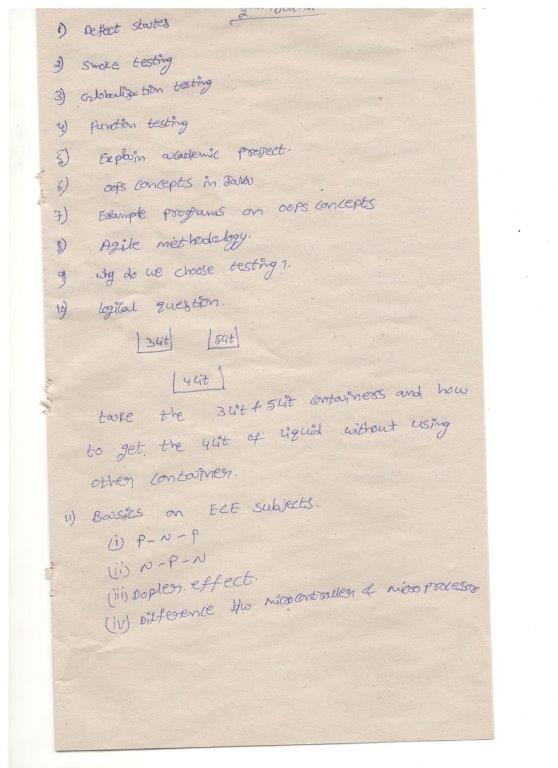 1) Defect states
2) Smoke testing
3) Globalization testing
4) Function testing
5) Explain academic project.
6) oops concepts in Java
7) Example programs on oops concepts
8) Agile methodology.
9) why do we choose testing?.
10) logical question.
3lit 5lit
4lit
take the 3lit & 5lit containers and how
to get the 4lit of liquid without using
other container.
11) Basics on ECE subjects.
(i) P-N-P
(ii) N-P-N
(iii) Dopler effect.
(iv) Difference b/w microcontroller & microprocessor